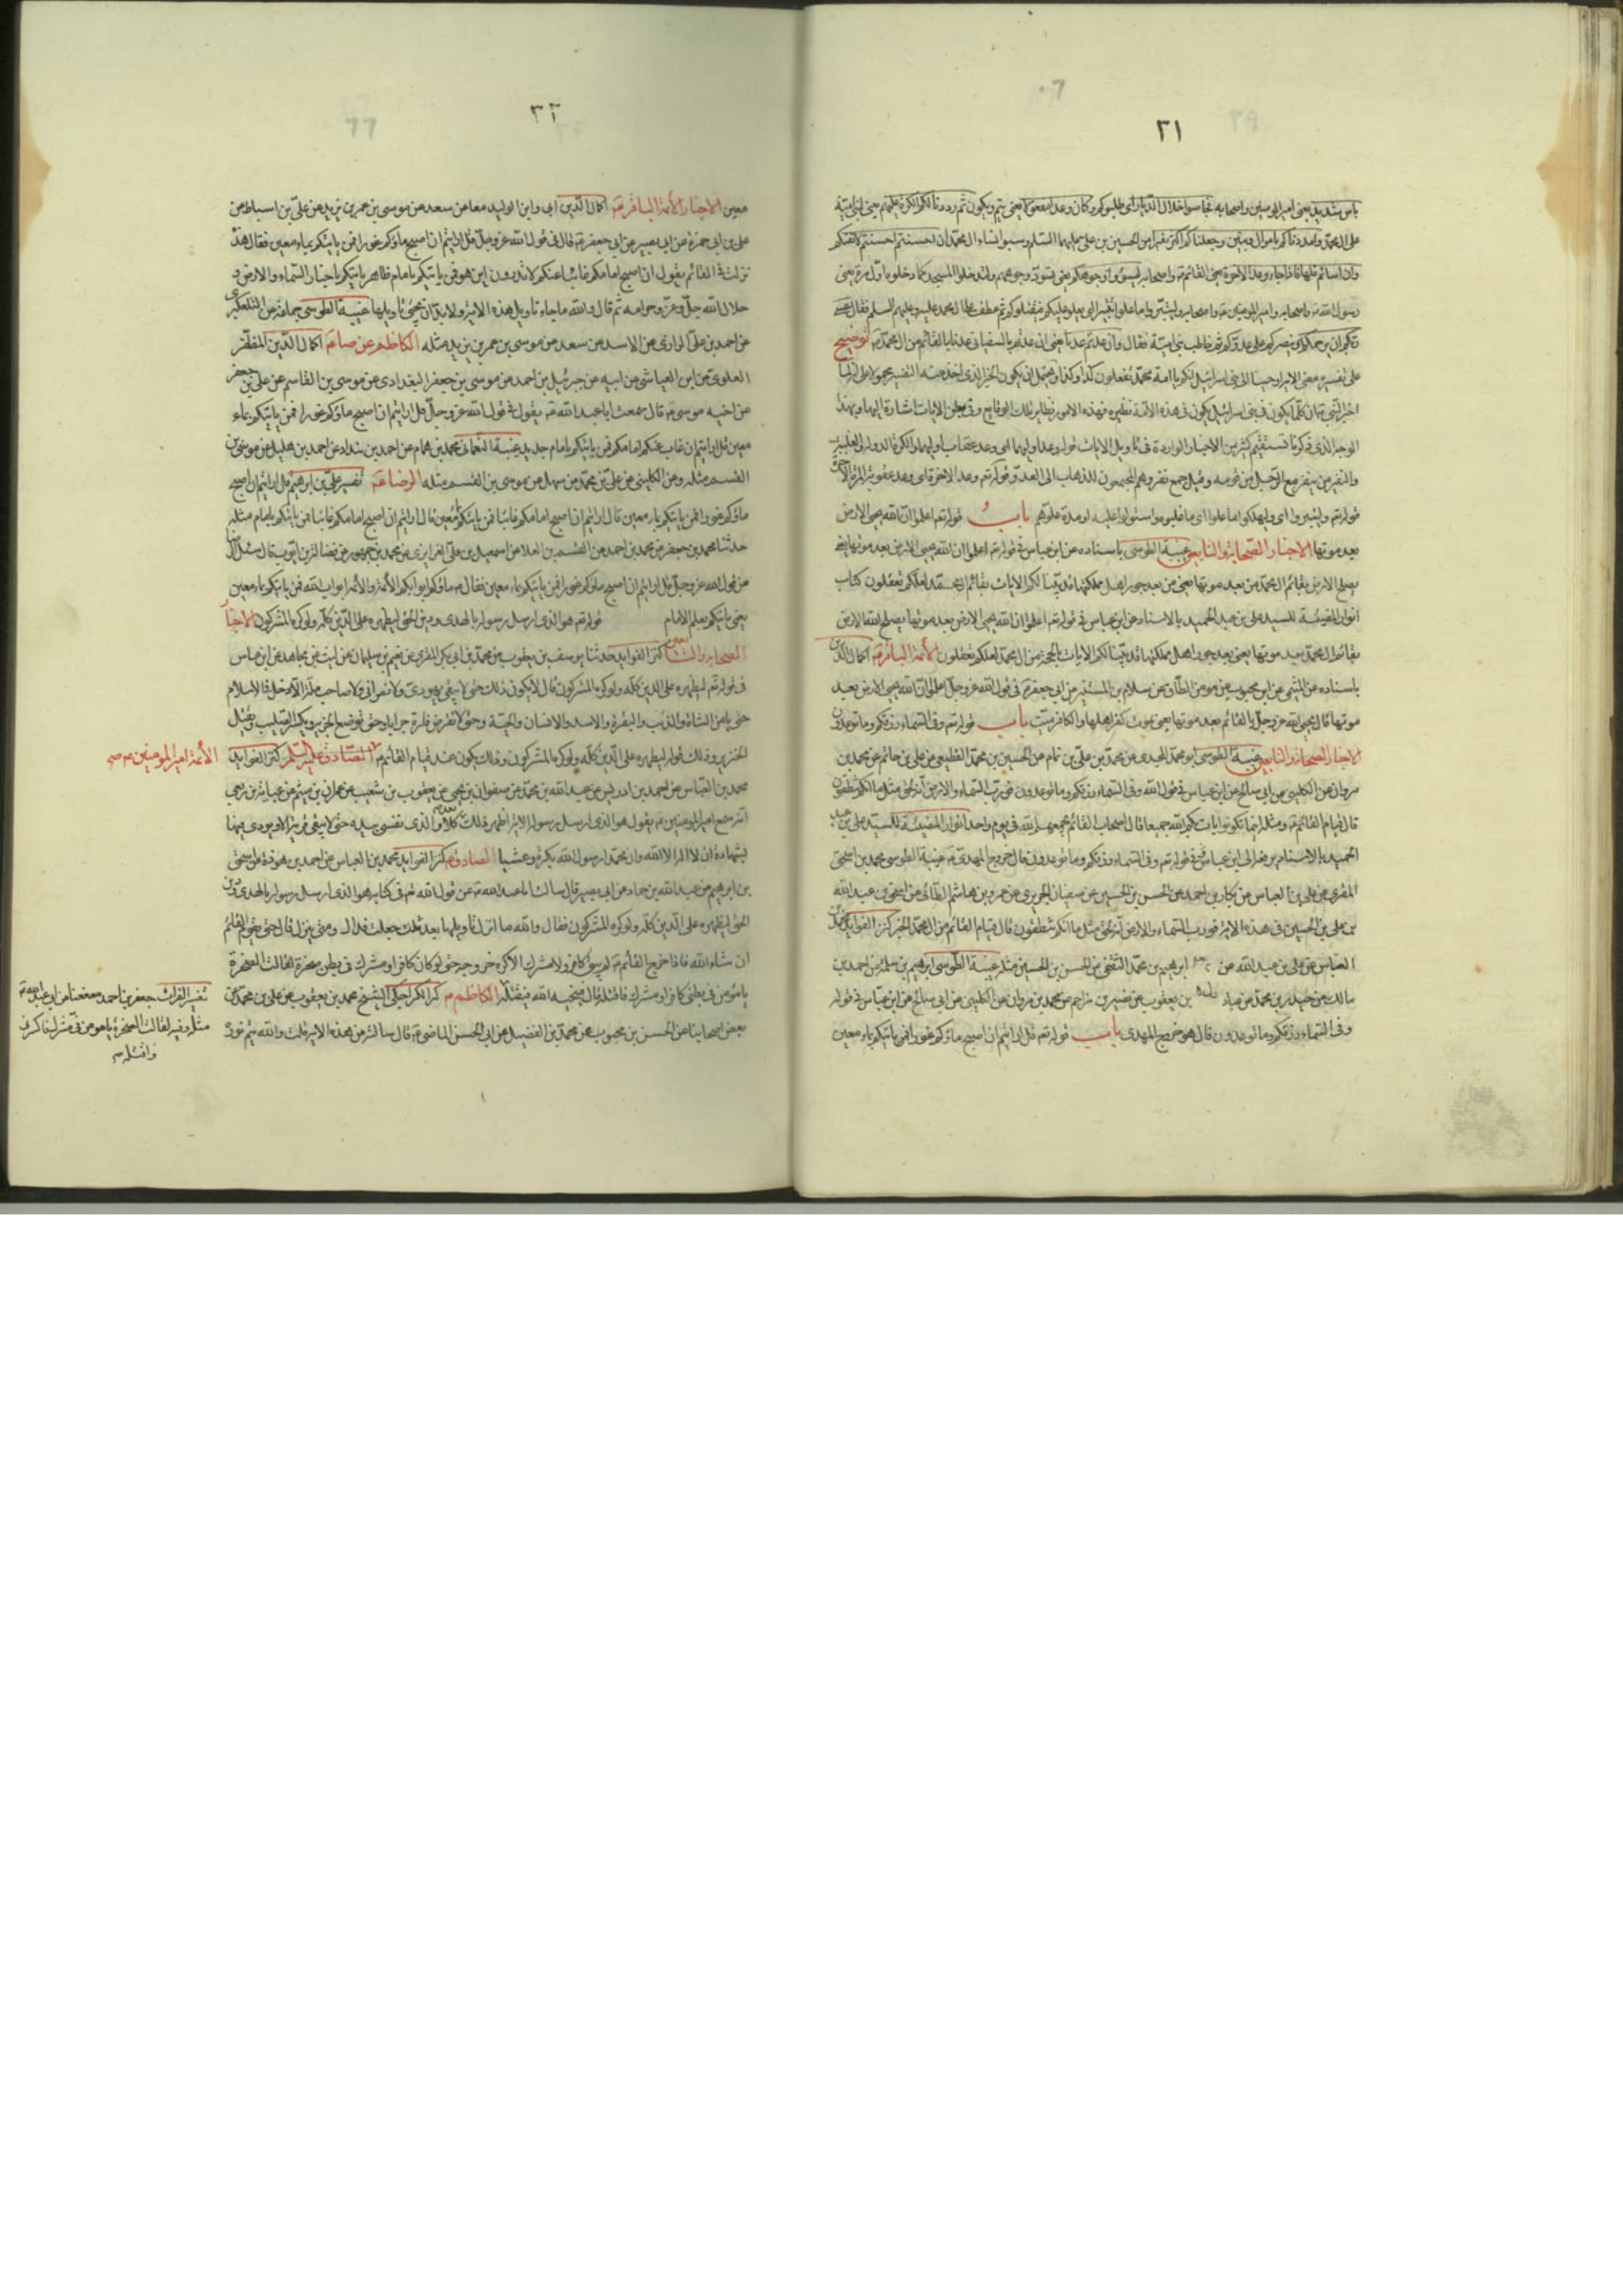 ٣١
باس شديد يعنى امير المومنين واصحابه فجاسوا خلال الديار اى طلبوكم وكان وعدا مفعولا يعنى يتم ويكون ثم رددنا لكم الكرة عليهم يعنى لبنى امية
على ال محمد وامددناكم باموال وبنين وجعلناكم اكثر نفيرا من الحسين بن على عليهما السلم وسبوا نساء ال محمد ان احسنتم احسنتم لانفسكم
وان اساتم فلها فاذا جاء وعد الاخرة يعنى القائم واصحابه ليسوؤا وجوهكم يعنى يسود وجوههم وليدخلوا المسجد كما دخلوه اول مرة يعنى
رسول الله واصحابه وامير المومنين واصحابه وليتبروا ما علوا تتبيرا اى يعلو عليكم فيقتلوكم ثم عطف على ال محمد عليه وعليهم السلم فقال عسى
ربكم ان يرحمكم اى ينصركم على عدوكم ثم خاطب بنى امية فقال وان عدتم عدنا يعنى ان عدتم بالسفيانى عدنا بالقائم من ال محمد توضيح
على تفسيره معنى الاية اوحينا الى بنى اسرائيل انكم يا امة محمد تفعلون كذا وكذا ويحتمل ان يكون الخبر الذى اخذ عنه التفسير محمولا على
اخبر النبى ان كلما يكون فى بنى اسرائيل يكون فى هذه الامة نظيره فهذه الامور نظاير تلك الوقايع وفى بطن الايات اشارة اليها وبهذا
الوجه الذى ذكرنا تستقيم كثير من الاخبار الواردة فى تأويل الايات قوله وعد اوليهما اى وعد عقاب اوليهما والكرة الدولة والغلبة
والنفير من ينفر مع الرجل من قومه وقيل جمع نفر وهم المجتمعون للذهاب الى العدو قوله تع وعد الاخرة اى وعد عقوبة المرة الاخرة
قوله تع وليتبروا اى وليهلكوا ما علوا اى ما غلبوه واستولوا عليه او مدة علوهم باب قوله تع اعلموا ان الله يحيى الارض
بعد موتها الاخبار الصحابة والتابعين غيبة الطوسى باسناده عن ابن عباس فى قوله تع اعلموا ان الله يحيى الارض بعد موتها يعنى
يصلح الارض بقائم ال محمد من بعد موتها يعنى من بعد جور اهل مملكتها قد بينا لكم الايات بقائم ال محمد لعلكم تعقلون كتاب
انوار المضيئة للسيد على بن عبد الحميد بالاسناد عن ابن عباس فى قوله تع اعلموا ان الله يحيى الارض بعد موتها يصلح الله الارض
بقائم ال محمد بعد موتها يعنى بعد جور اهل مملكتها قد بينا لكم الايات بالحجة من ال محمد لعلكم تعقلون الأئمة الباقر اكمال الدين
باسناده عن الميثمى عن ابن محبوب عن مومن الطاق عن سلام بن المستنير عن ابى جعفر فى قول الله عز وجل اعلموا ان الله يحيى الارض بعد
موتها قال يحيى الله عز وجل بالقائم بعد موتها يعنى بموت كفر اهلها والكافر ميت باب قوله تع وفى السماء رزقكم وما توعدون
الاخبار الصحابة والتابعين غيبة الطوسى ابو محمد المجيدى عن محمد بن على بن تمام عن الحسين بن محمد القطيعى عن على بن حاتم عن محمد بن
مروان عن الكلبى عن ابى صالح عن ابن عباس فى قول الله وفى السماء رزقكم وما توعدون فورب السماء والارض انه لحق مثل ما انكم تنطقون
قال قيام القائم ومثله اينما تكونوا يات بكم الله جميعا قال اصحاب القائم يجمعهم الله فى يوم واحد انوار المضيئة للسيد على بن عبد
الحميد بالاسناد يرفعه الى ابن عباس فى قوله تع وفى السماء رزقكم وما توعدون قال خروج المهدى غيبة الطوسى محمد بن اسحق
المقرى عن على بن العباس عن بكار بن احمد عن الحسن بن الحسين عن سفيان الجريرى عن عمرو بن هاشم الطائى عن اسحق بن عبد الله
بن على بن الحسين فى هذه الاية فورب السماء والارض انه لحق مثل ما انكم تنطقون قال قيام القائم من ال محمد الخبر كنز الفوايد محمد بن
العباس عن على بن عبد الله عن ابرهيم بن محمد الثقفى عن الحسن بن الحسين مثله غيبة الطوسى ابرهيم بن سلمة عن احمد بن
مالك عن حيدر بن محمد عن عباد بن يعقوب عن نصر بن مزاحم عن محمد بن مروان عن الكلبى عن ابى صالح عن ابن عباس فى قوله
وفى السماء رزقكم وما توعدون قال هو خروج المهدى باب قوله تع قل ارايتم ان اصبح ماؤكم غورا فمن ياتيكم بماء معين
٣٢
معين الاخبار الأئمة الباقر اكمال الدين ابى وابن الوليد معا عن سعد عن موسى بن عمر بن يزيد عن على بن اسباط عن
على بن ابى حمزة عن ابى بصير عن ابى جعفر قال فى قول الله عز وجل قل ارايتم ان اصبح ماؤكم غورا فمن ياتيكم بماء معين فقال هذه
نزلت فى القائم يقول ان اصبح امامكم غائبا عنكم لا تدرون اين هو فمن ياتيكم بامام ظاهر ياتيكم باخبار السماء والارض و
حلال الله جل وعز وحرامه ثم قال والله ما جاء تاويل هذه الاية ولا بد ان يجيئ تاويلها غيبة الطوسى جماعة عن التلعكبرى
عن احمد بن على الرازى عن الاسدى عن سعد عن موسى بن عمر بن يزيد مثله الكاظم اكمال الدين المظفر
العلوى عن ابن العياشى عن ابيه عن جبرئيل بن احمد عن موسى بن جعفر البغدادى عن موسى بن القاسم عن على بن جعفر
عن اخيه موسى قال سمعت ابا عبد الله يقول فى قول الله عز وجل قل ارايتم ان اصبح ماؤكم غورا فمن ياتيكم بماء
معين قل ارايتم ان غاب عنكم امامكم فمن ياتيكم بامام جديد غيبة النعمانى محمد بن همام عن احمد بن بنداد عن احمد بن هليل عن موسى بن
القسم مثله وعن الكلينى عن على بن محمد عن سهل عن موسى بن القسم مثله الرضا تفسير على بن ابرهيم قل ارايتم ان اصبح
ماؤكم غورا فمن ياتيكم بماء معين قال ارايتم ان اصبح امامكم غائبا فمن ياتيكم بامام مثله
حدثنا محمد بن جعفر عن محمد بن احمد عن القسم بن العلا عن اسمعيل بن على الفزارى عن محمد بن جمهور عن فضالة بن ايوب قال سئل الرضا
عن قول الله عز وجل قل ارايتم ان اصبح ماؤكم غورا فمن ياتيكم بماء معين فقال ماؤكم ابوابكم الأئمة والأئمة ابواب الله فمن ياتيكم بماء معين
يعنى ياتيكم بعلم الامام قوله تع هو الذى ارسل رسوله بالهدى ودين الحق ليظهره على الدين كله ولو كره المشركون الاخبار
الصحابة والتابعون كنز الفوايد حدثنا يوسف بن يعقوب عن محمد بن ابى بكر المقرى عن نعيم بن سليمان عن ليث عن مجاهد عن ابن عباس
فى قوله تع ليظهره على الدين كله ولو كره المشركون قال لا يكون ذلك حتى لا يبقى يهودى ولا نصرانى ولا صاحب ملة الا دخل فى الاسلام
حتى يامن الشاة والذئب والبقرة والاسد والانسان والحية وحتى لا تقرض فارة جرابا وحتى توضع الجزية ويكسر الصليب ويقتل
الخنزير وذلك قوله ليظهره على الدين كله ولو كره المشركون وذلك يكون عند قيام القائم الصادق عليه السلم كنز الفوايد
محمد بن العباس عن احمد بن ادريس عن عبد الله بن محمد عن صفوان بن يحيى عن يعقوب بن شعيب عن عمران بن ميثم عن عباية بن ربعى
انه سمع امير المومنين يقول هو الذى ارسل رسوله الاية اظهر ذلك بعد كلا والذى نفسى بيده حتى لا يبقى قرية الا ونودى فيها
بشهادة ان لا اله الا الله وان محمدا رسول الله بكرة وعشيا الصادق كنز الفوايد محمد بن العباس عن احمد بن هوذة عن اسحق
بن ابرهيم عن عبد الله بن حماد عن ابى بصير قال سالت ابا عبد الله عن قول الله تع فى كتابه هو الذى ارسل رسوله بالهدى ودين
الحق ليظهره على الدين كله ولو كره المشركون فقال والله ما انزل تاويلها بعد قلت جعلت فداك ومتى ينزل قال حتى يقوم القائم
ان شاء الله فاذا خرج القائم لم يبق كافر ولا مشرك الا كره خروجه حتى لو كان كافر او مشرك فى بطن صخرة لقالت الصخرة
يا مومن فى بطنى كافر او مشرك فاقتله قال فينحيه الله فيقتله الكاظم الكراجكى الشيخ محمد بن يعقوب عن على بن محمد عن
بعض اصحابنا عن الحسن بن محبوب عن محمد بن الفضيل عن ابى الحسن الماضى قال سالته عن هذه الاية قلت والله متم نوره
الأئمة امير المومنين صح
تفسير الفرات جعفر بن احمد معنعنا عن ابى عبد الله
مثله وفيه لقالت الصخرة يا مومن فى مشرك فاكسرنى
واقتله